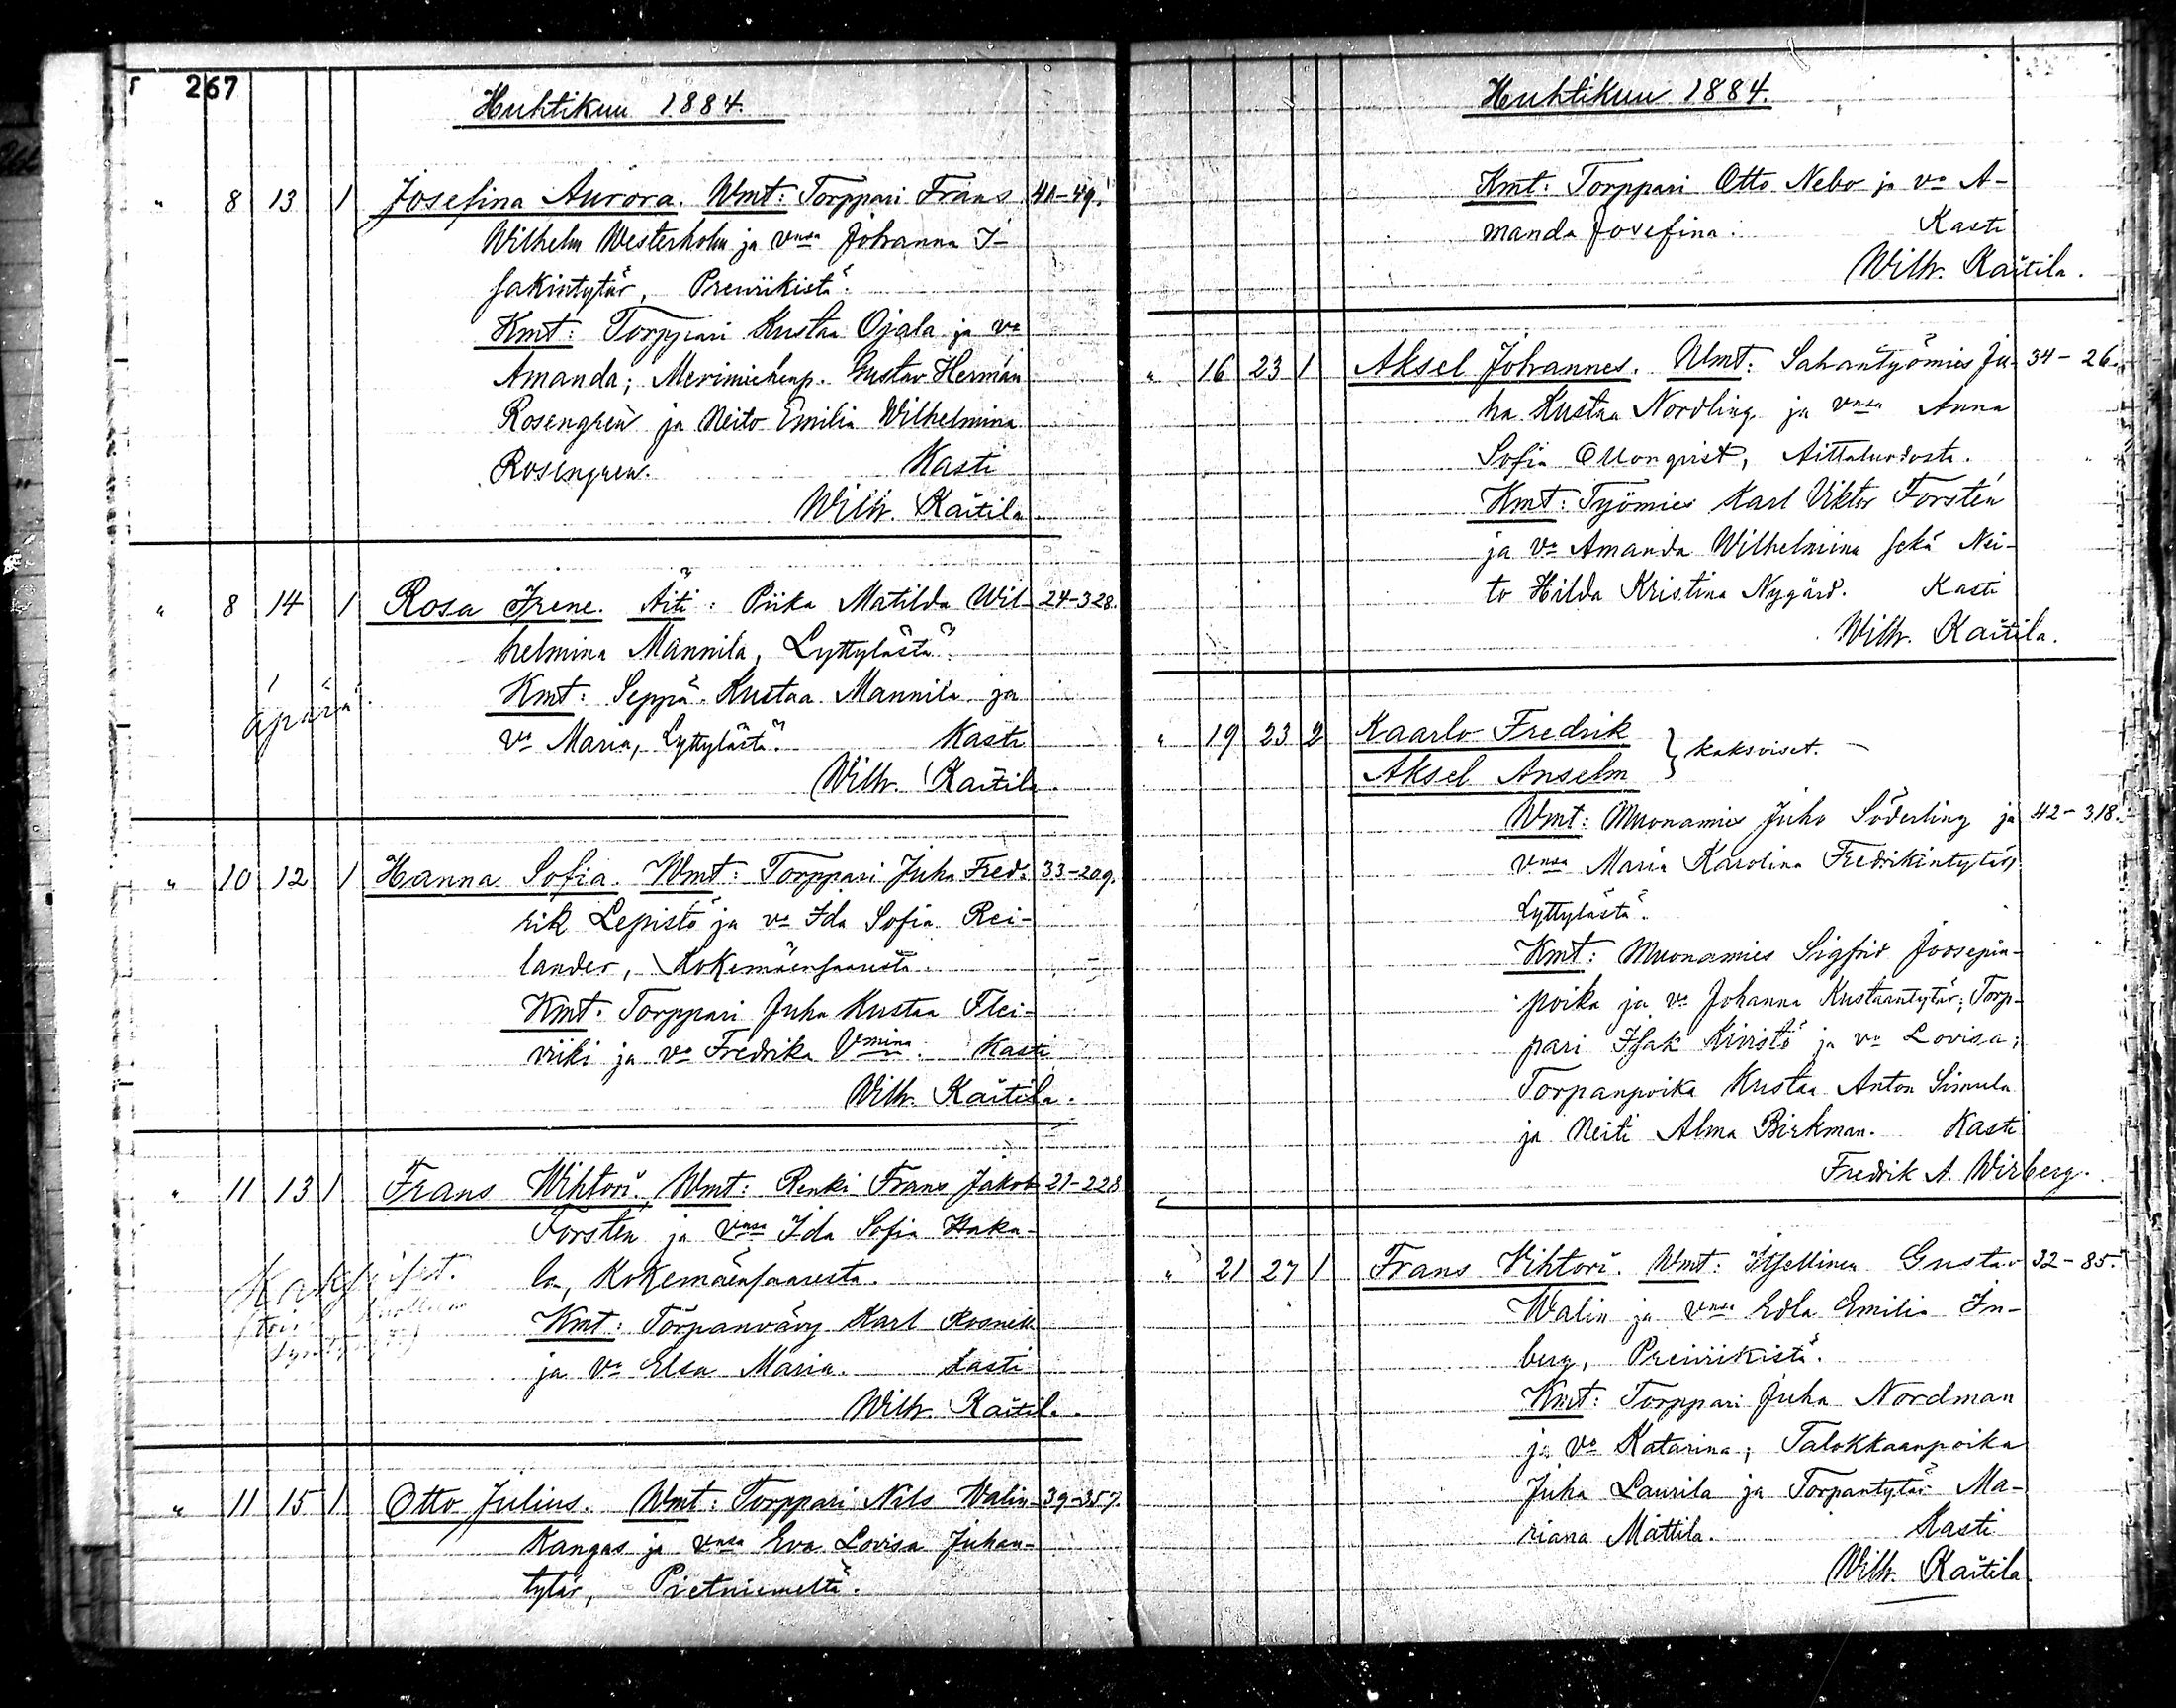 267
Huhtikuu 1884.
" 8 13 1 Josefina Aurora. Wmt: Torppari Frans 41-49.
Wilhelm Westerholm ja vnsa Johanna I-
sakintytär, Preiviikistä.
Kmt: Torppari Kustaa Ojala ja va
Amanda; Merimiehenp. Gustav Herman
Rosengren ja Neito Emilia Wilhelmina
Rosengren. Kasti
Wilh. Kaitila
" 8 14 1 Rosa Irene. Äiti: Piika Matilda Wil- 24-328.
helmina Mannila, Lyttylästä.
Kmt: Seppä Kustaa Mannila ja
äpärä.
va Maria, Lyttylästä. Kasti
Wilh. Kaitila.
" 10 12 1 Hanna Sofia. Wmt: Torppari Juha Fred- 33-209.
rik Lepistö ja va Ida Sofia Rei-
lander, Kokemäensaaresta.
Kmt: Torppari Juha Kustaa Flei-
viiki ja va Fredrika Vmina. Kasti
Wilh. Kaitila.
" 11 13 1 Frans Wihtori. Wmt: Renki Frans Jakob 21-228
Forsten ja vnsa Ida Sofia Haka-
Kaksoiset.
la, Kokemäensaaresta.
Kmt: Torpanvävy Karl Rosnell
ja va Elsa Maria. Kasti
Wilh. Kaitila.
" 11 15 1 Otto Julius. Wmt: Torppari Nils Walin- 39-357.
Kangas ja vnsa Eva Lovisa Juhan-
tytär, Pietniemeltä.
Huhtikuu 1884.
Kmt: Torppari Otto Nebo ja va A-
manda Josefina. Kasti
Wilh. Kaitila.
" 16 23 1 Aksel Johannes. Wmt: Sahantyömies Ju- 34-26.
ha Kustaa Nordling ja vnsa Anna
Sofia Ollonqvist, Aittaluodosta.
Kmt: Työmies Karl Viktor Forstén
ja va Amanda Wilhelmina sekä Nei-
to Hilda Kristina Nygård. Kasti
Wilh. Kaitila.
" 19 23 2 Kaarlo Fredrik
} kaksoiset.
Aksel Anselm
Wmt: Muonamies Juho Söderling ja 42-318.
vnsa Maria Karolina Fredrikintytär,
Lyttylästä.
Kmt: Muonamies Sigfrid Joosepin-
poika ja va Johanna Kustaantytär; Torp-
pari Isak Kivistö ja va Lovisa;
Torpanpoika Kustaa Anton Simula
ja Neiti Alma Birkman. Kasti
Fredrik A. Wirberg.
" 21 27 1 Frans Vihtori. Wmt: Itsellinen Gustav 32-85.
Walin ja vnsa Edla Emilia In-
berg, Preiviikistä.
Kmt: Torppari Juha Nordman
ja va Katarina; Talokkaanpoika
Juha Laurila ja Torpantytär Ma-
riana Mattila. Kasti
Wilh. Kaitila